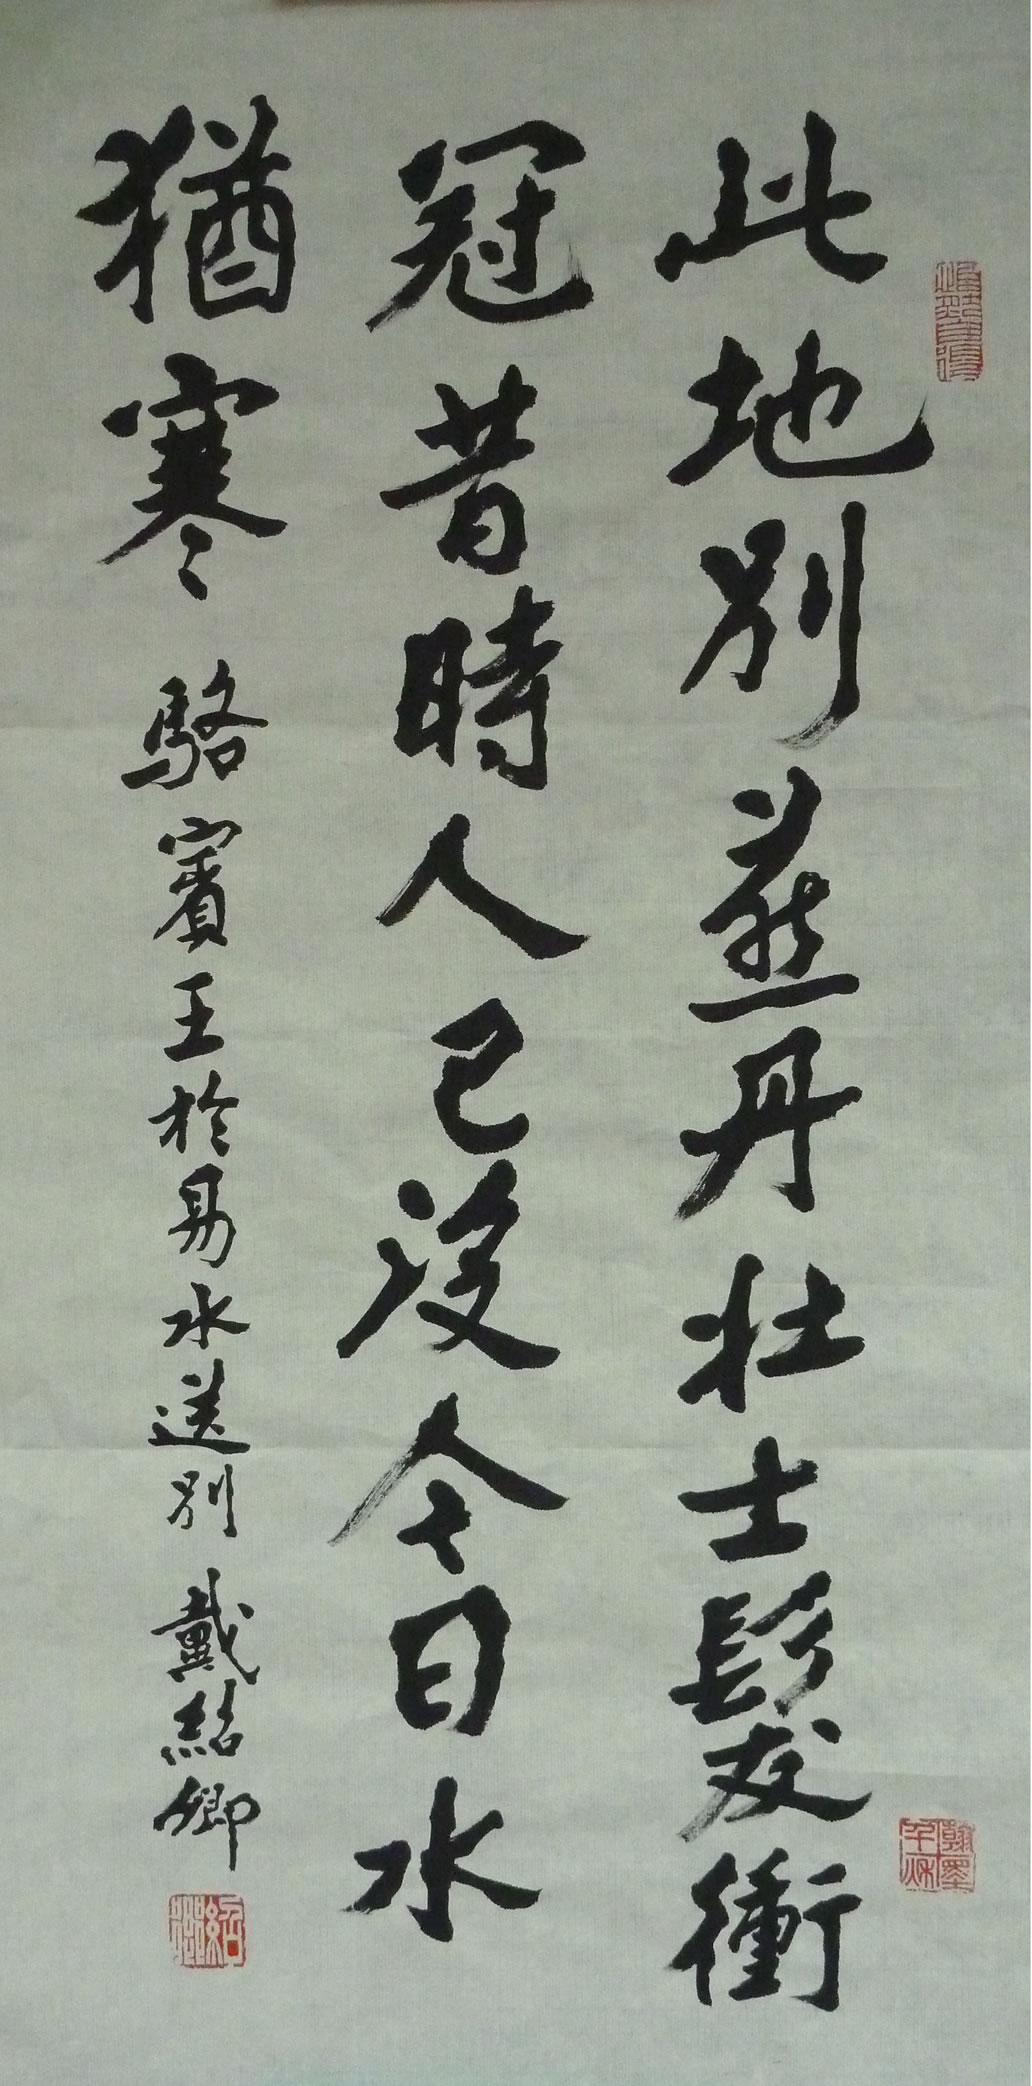 此地別燕丹壯士髮衝
冠昔時人已沒今日水
猶寒 駱賓王於易水送別 戴紹卿
翰墨千秋